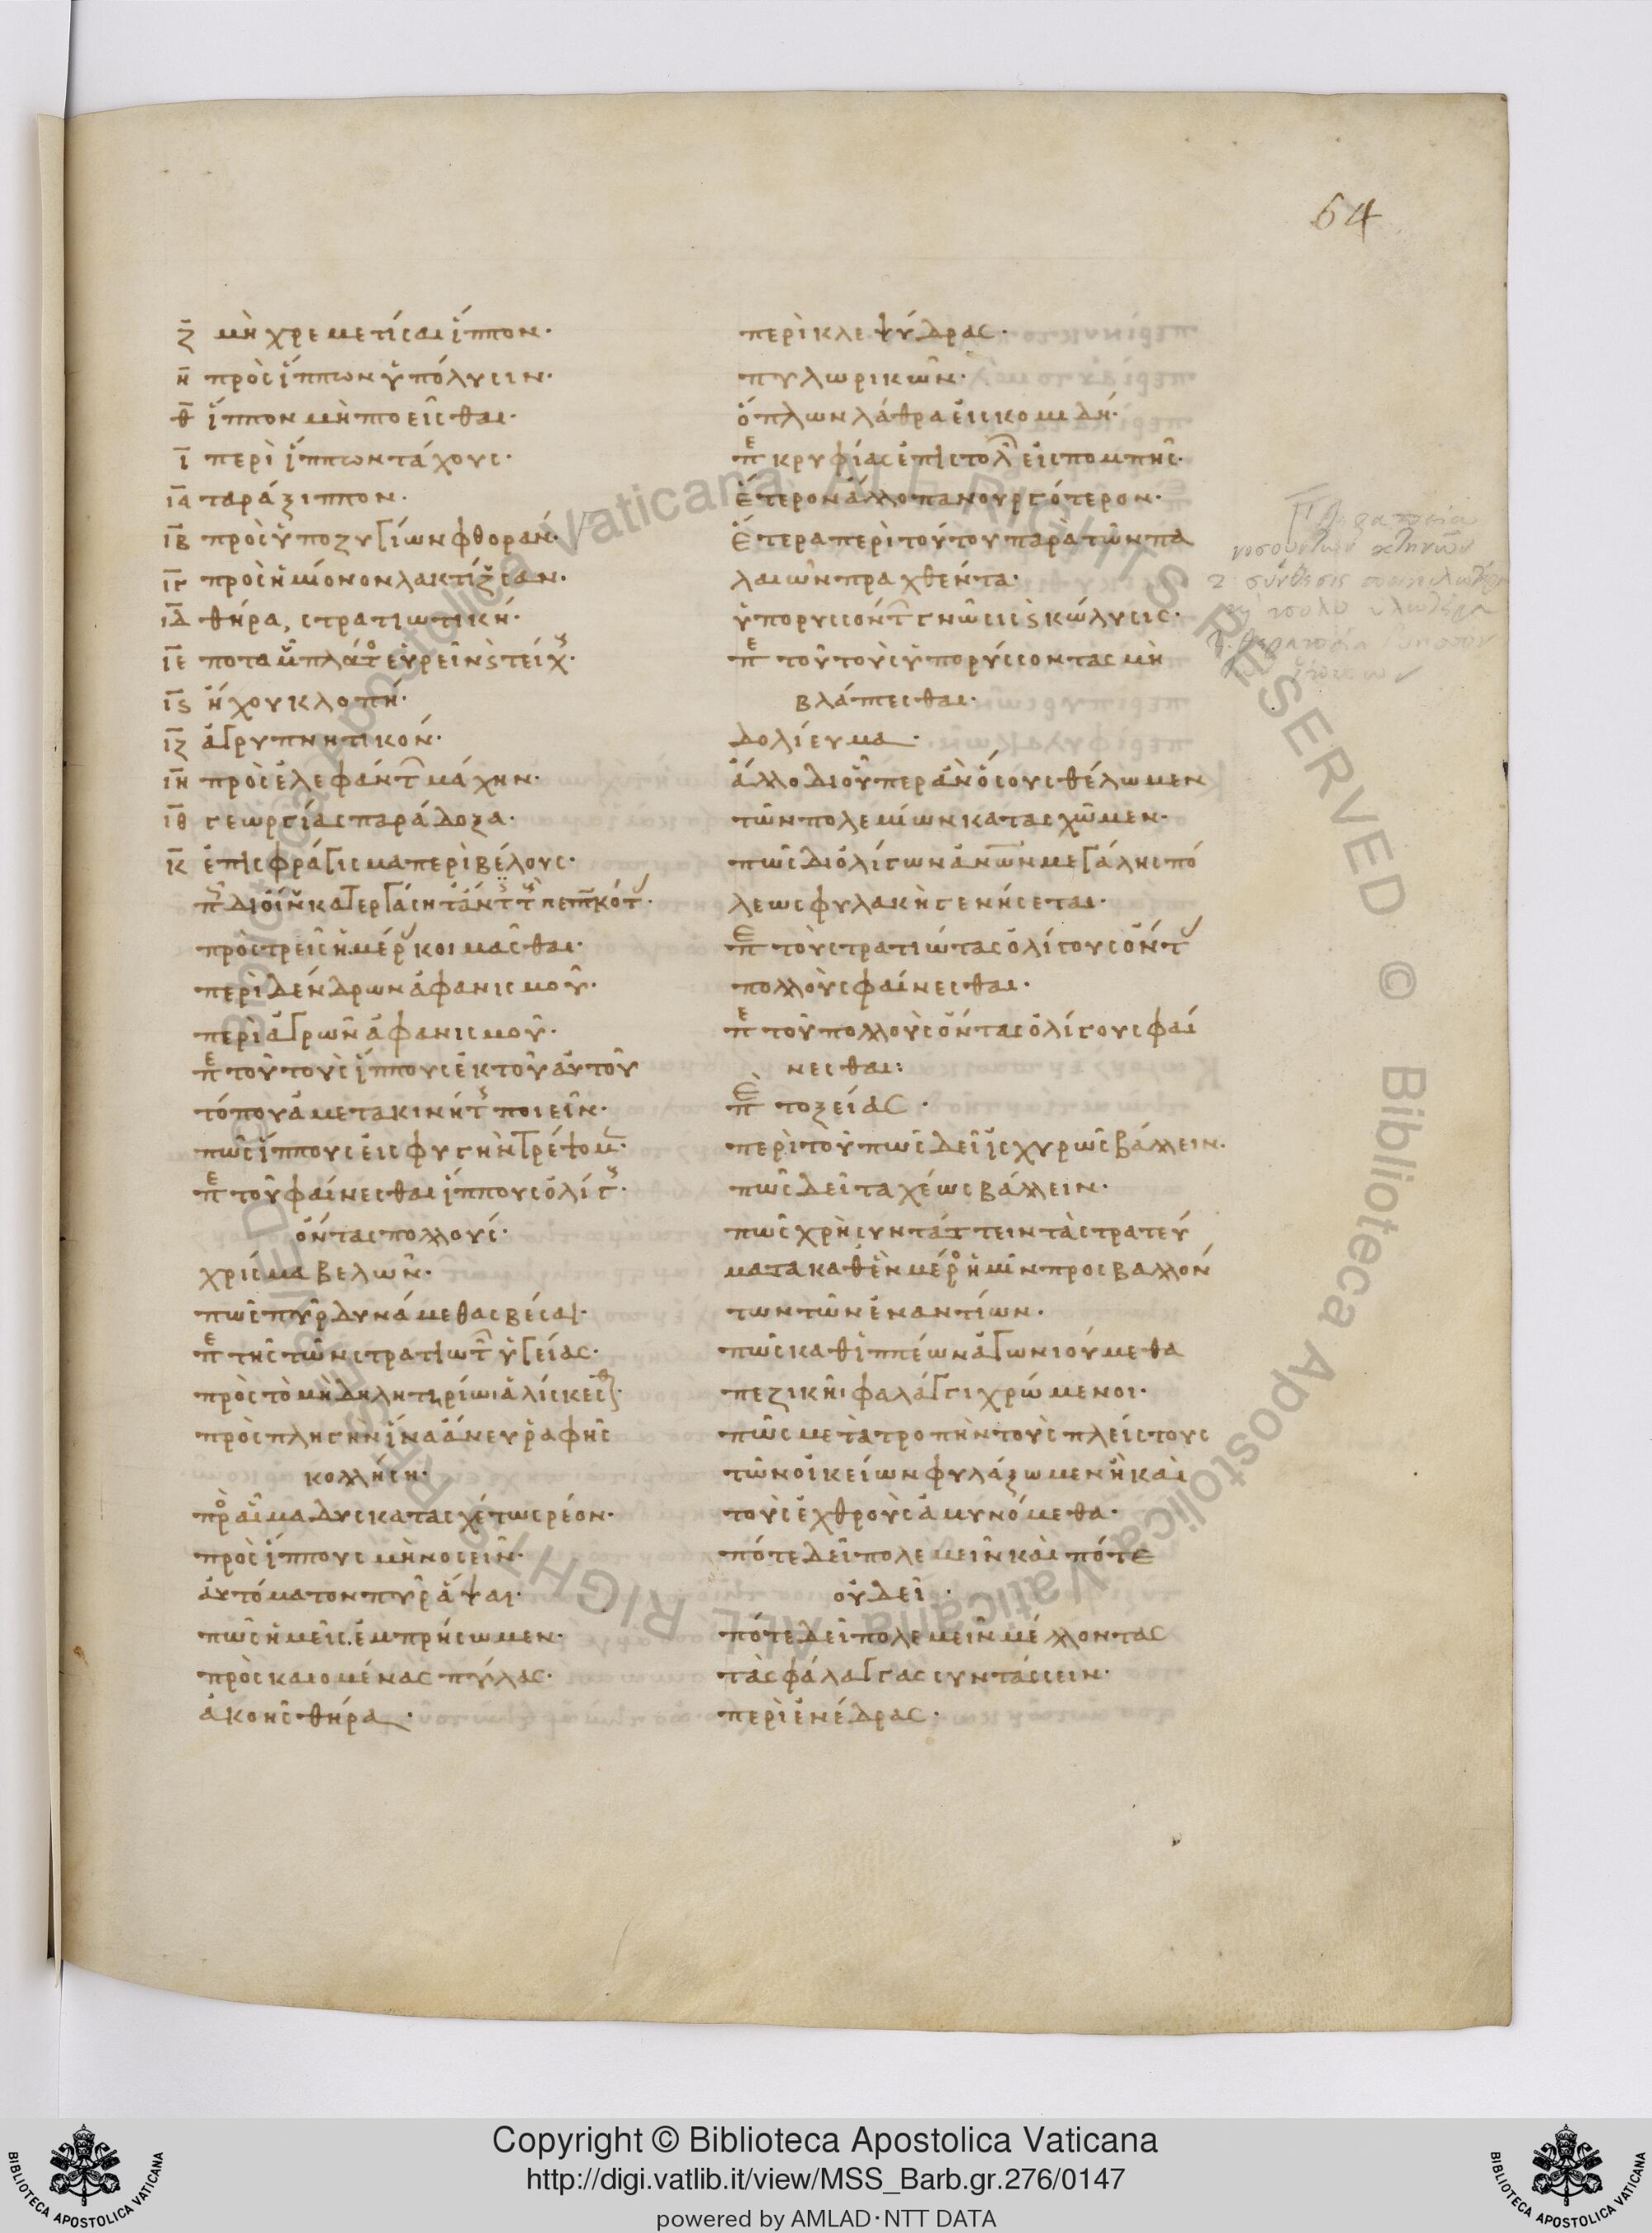 64
ζ μὴ χρεμετίσαι ἵππον·
η πρὸς ἵππων ὑπόλυσιν·
θ ἵππον μὴ πτοεῖσθαι·
ι περὶ ἵππων τάχους·
ια ταράξιππον·
ιβ πρὸς ὑποζυγίων φθοράν·
ιγ πρὸς ἡμίονον λακτίζουσαν·
ιδ θήρα, στρατιωτική·
ιε ποταμοῦ πλάτος εὑρεῖν ϛ τείχους·
ιϛ ἤχου κλοπή·
ιζ ἀγρυπνητικόν·
ιη πρὸς ἐλεφάντ μάχην·
ιθ γεωργίας παράδοξα·
κ ἐπισφράγισμα περὶ βέλους·
πρὸς τρεῖς ἡμέρ κοιμᾶσθαι·
περὶ δένδρων ἀφανισμοῦ·
περὶ ἀγρῶν ἀφανισμοῦ·
πε τοῦ τοὺς ἵππους ἐκ τοῦ αὐτοῦ
τόπου ἀμετακινήτ ποιεῖν·
πῶς ἵππους εἰς φυγὴν τρέψομ·
πε τοῦ φαίνεσθαι ἵππους ὀλίγ·
ὄντας πολλούς·
χρίσμα βελῶν·
πῶς πῦρ δυνάμεθα σβέσαι·
πε τῆς τῶν στρατιωτ ὑγείας·
πρὸς τὸ μὴ δηλητηρίωι ἁλίσκεσθ·
πρὸς πληγὴν ἵνα ἄνευ ῥαφῆς
κολλήσῃ·
πρὸ αἷμα δυσκατασχέτως ῥέον·
πρὸς ἵππους μὴ νοσεῖν·
αὐτόματον πῦρ ἅψαι·
πῶς ἡμεῖς ἐμπρήσωμεν·
πρὸς καιομένας πύλας·
ἀκοῆς θήρα·
περὶ κλεψύδρας·
πυλωρικῶν·
ὅπλων λάθρα εἰσκομιδή·
πε κρυφίας ἐπιστολ εἰσπομπῆς·
ἕτερον ἄλλο πανουργότερον·
ἕτερα περὶ τούτου παρὰ τῶν πα
λαιῶν πραχθέντα·
ὑπορυσσόντ γνῶσις ϛ κώλυσις·
πε τοῦ τοὺς ὑπορύσσοντας μὴ
βλάπτεσθαι·
δολίευμα·
ἄλλο δι οὗπερ ἂν ὅσους θέλωμεν
τῶν πολεμίων κατασχῶμεν·
πῶς δι ὀλίγων ἀνων μεγάλης πό
λεως φυλακὴ γενήσεται·
πε τοὺς στρατιώτας ὀλίγους ὄντ
πολλοὺς φαίνεσθαι·
πε τοῦ πολλοὺς ὄντας ὀλίγους φαί
νεσθαι:
πε τοξείας·
περὶ τοῦ πῶς δεῖ ἰσχυρῶς βάλλειν·
πῶς δεῖ ταχέως βάλλειν·
πῶς χρὴ συντάττειν τὰ στρατεύ
ματα καθ ἓν μέρο ἡμῖν προσβαλλόν
των τῶν ἐναντίων·
πῶς καθ ἱππέων ἀγωνιούμεθα
πεζικῆι φάλαγγι χρώμενοι·
πῶς μετὰ τροπὴν τοὺς πλείστους
τῶν οἰκείων φυλάξωμεν ἢ καὶ
τοὺς ἐχθροὺς ἀμυνόμεθα·
πότε δεῖ πολεμεῖν καὶ πότε
οὐ δεῖ·
πότε δεῖ πολεμεῖν μέλλοντας
τὰς φάλαγγας συντάσσειν·
περὶ ἐνέδρας·
Copyright © Biblioteca Apostolica Vaticana
http://digi.vatlib.it/view/MSS_Barb.gr.276/0147
powered by AMLAD·NTT DATA
BIBLIOTECA APOSTOLICA VATICANA
BIBLIOTECA APOSTOLICA VATICANA
© Biblioteca Apostolica Vaticana ALL RIGHTS RESERVED © Biblioteca Apostolica Vaticana ALL RIGHTS RESERVED